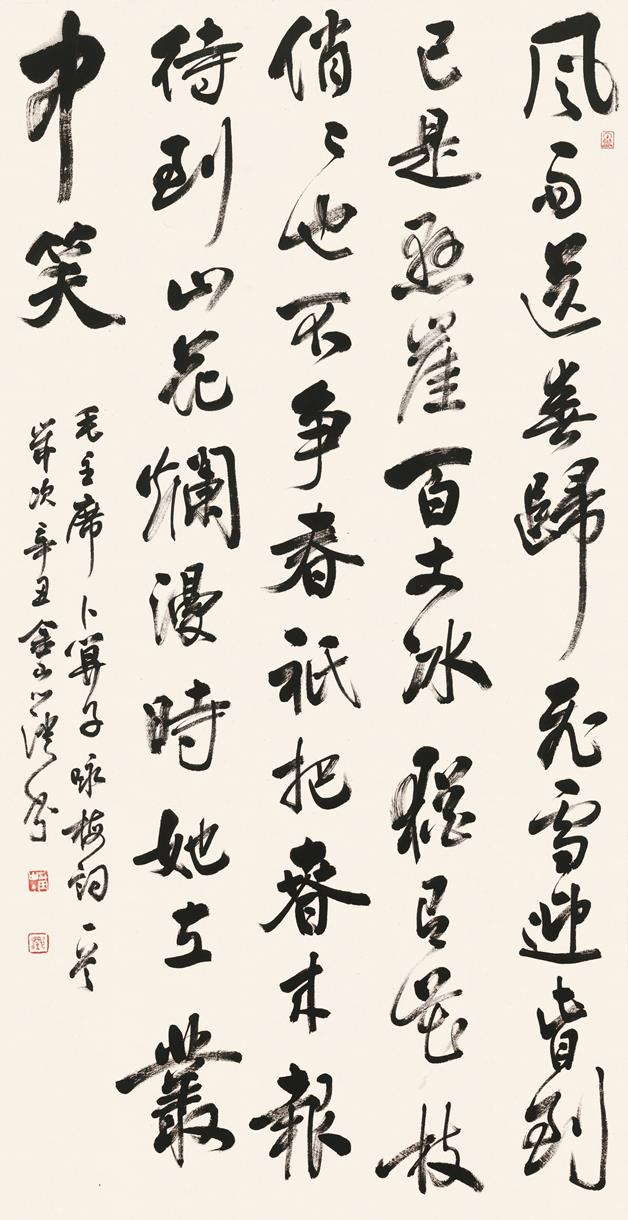 風雨送春歸飛雪迎春到
已是懸崖百丈冰猶有花枝
俏〻也不争春祇把春来報
待到山花爛漫時她在叢
中笑
毛主席卜算子咏梅詞一首
歲次辛丑金山